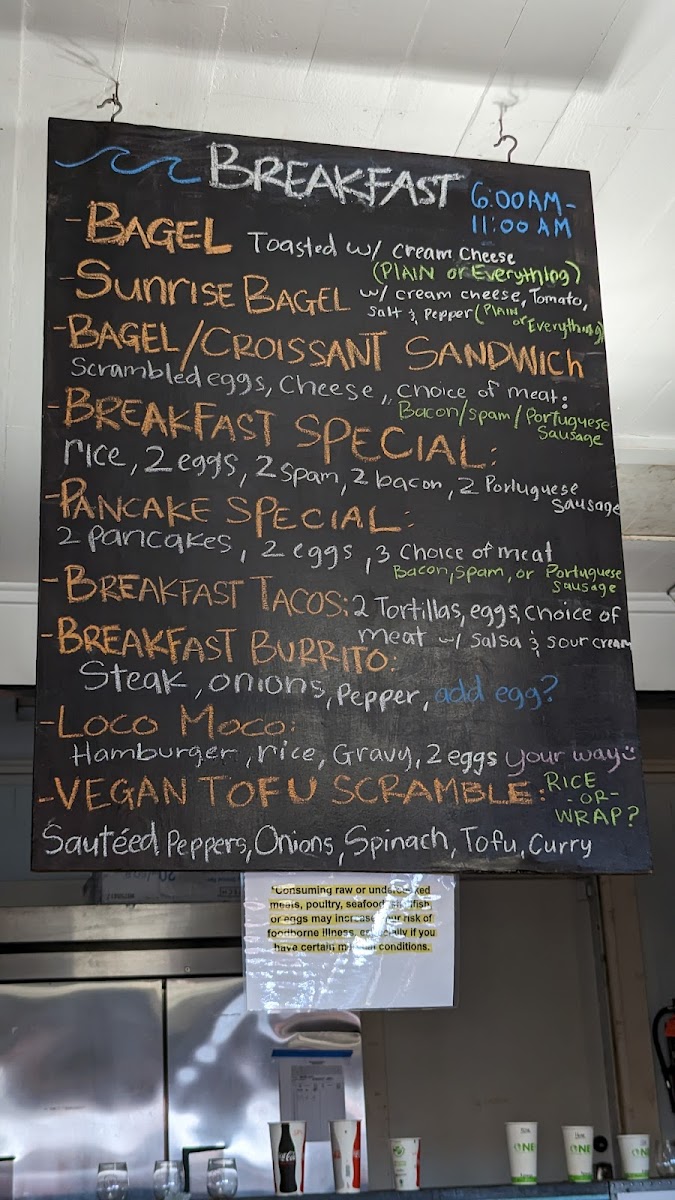 BREAKFAST 6:00AM-
11:00 AM
-BAGEL Toasted w/ cream cheese
(PLAIN or Everything)
-SUNRISE BAGEL w/ cream cheese, Tomato,
Salt & Pepper (PLAIN
or Everything)
-BAGEL/CROISSANT SANDWICH
Scrambled eggs, cheese, choice of meat:
Bacon/spam/Portuguese
Sausage
-BREAKFAST SPECIAL:
rice, 2 eggs, 2 spam, 2 bacon, 2 Portuguese
Sausage
-PANCAKE SPECIAL:
2 pancakes, 2 eggs, 3 choice of meat
Bacon, spam, or Portuguese
Sausage
-BREAKFAST TACOS: 2 Tortillas, eggs, choice of
meat w/ salsa & sour cream
-BREAKFAST BURRITO:
Steak, onions, Pepper, add egg?
-LOCO MOCO:
Hamburger, rice, Gravy, 2 eggs your way
-VEGAN TOFU SCRAMBLE: RICE
-OR-
WRAP?
Sautéed Peppers, Onions, Spinach, Tofu, Curry
*Consuming raw or undercooked
meats, poultry, seafood, shellfish,
or eggs may increase your risk of
foodborne illness, especially if you
have certain medical conditions.
Coca-Cola